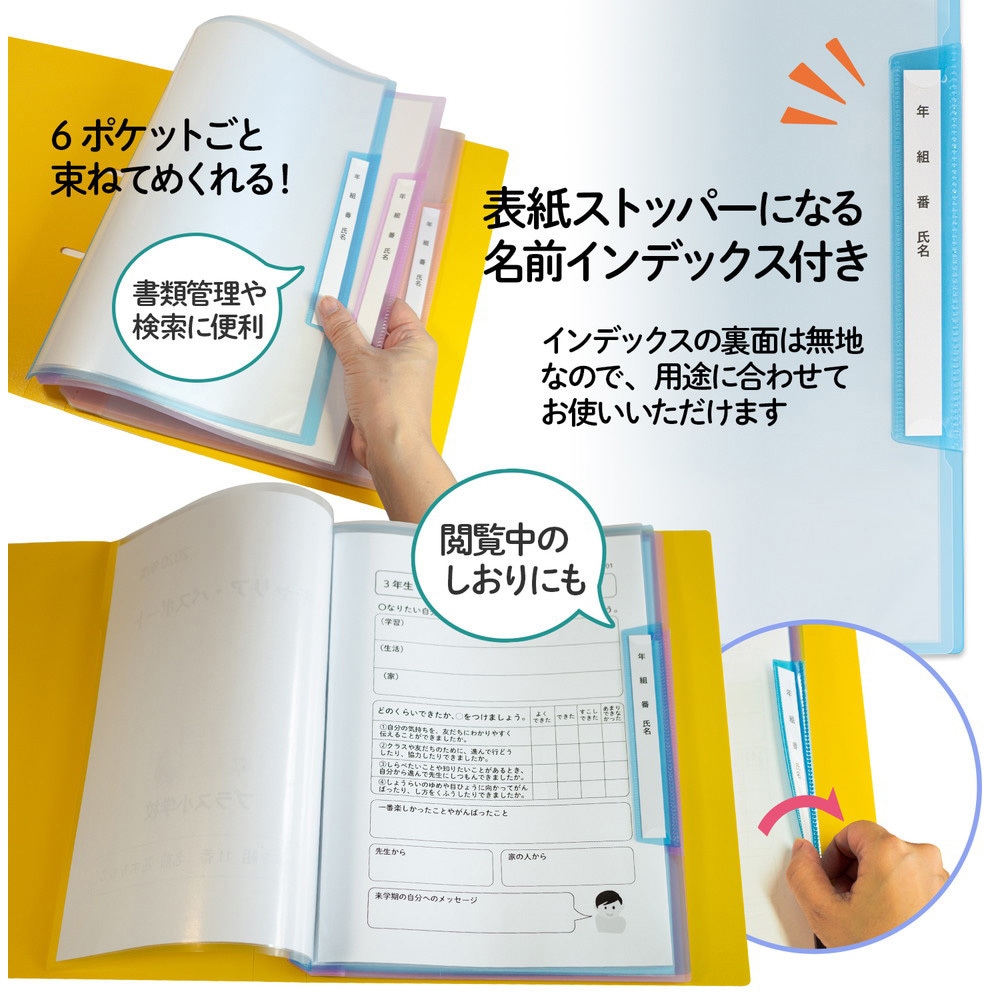 6ポケットごと
束ねてめくれる！
書類管理や
検索に便利
年 組 番 氏名
年 組 番 氏名
年 組 番 氏名
表紙ストッパーになる
名前インデックス付き
インデックスの裏面は無地
なので、用途に合わせて
お使いいただけます
年 組 番 氏名
閲覧中の
しおりにも
3年生
〇なりたい自
う。
（学習）
（生活）
（家）
どのくらいできたか、○をつけましょう。
よくできた
できた
すこしできた
あまりできなかった
①自分の気持ちを、友だちにわかりやすく
伝えることができましたか。
②クラスや友だちのために、進んで行どう
したり、協力したりできましたか。
③しらべたいことや知りたいことがあるとき、
自分から進んで先生にしつもんできましたか。
④しょうらいのゆめや目ひょうに向かってがん
ばったり、し方をくふうしたりできましたか。
一番楽しかったことやがんばったこと
先生から
家の人から
来学期の自分へのメッセージ
年 組 番 氏名
年 組 番 氏名